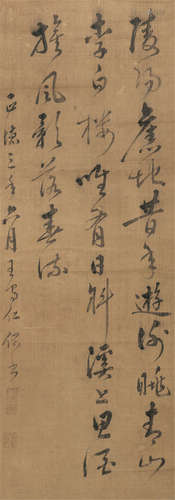 陵陽舊地昔年遊謝眺青山
李白樓唯有日斜溪上思酒
旗風影落春流
正德三年六月王守仁伯安